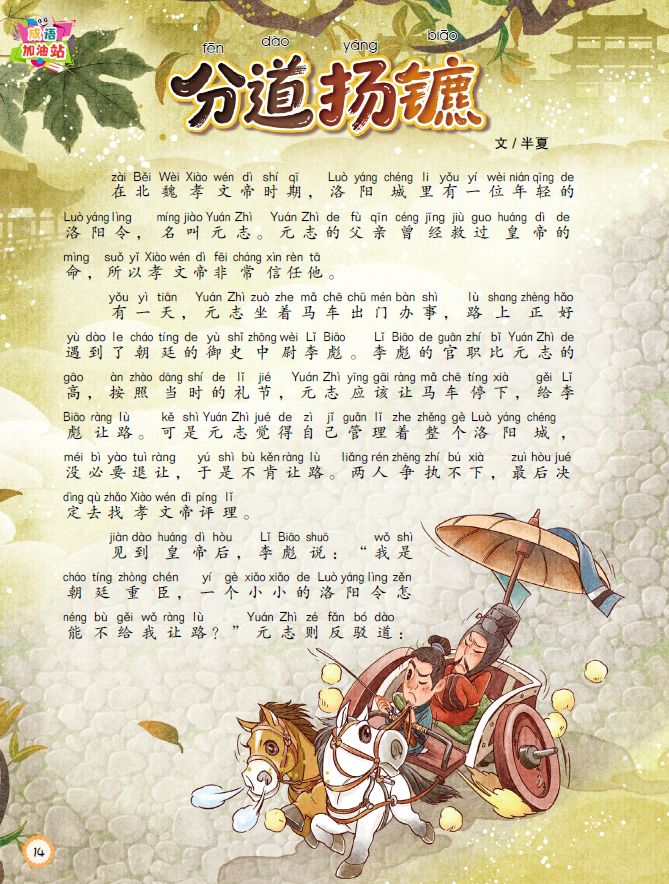 成语
加油站
fēn dào yáng biāo
分道扬镳
文/半夏
zài Běi Wèi Xiào wén dì shí qī Luò yáng chéng li yǒu yí wèi nián qīng de
在北魏孝文帝时期，洛阳城里有一位年轻的
Luò yáng lìng míng jiào Yuán Zhì Yuán Zhì de fù qīn céng jīng jiù guo huáng dì de
洛阳令，名叫元志。元志的父亲曾经救过皇帝的
mìng suǒ yǐ Xiào wén dì fēi cháng xìn rèn tā
命，所以孝文帝非常信任他。
yǒu yì tiān Yuán Zhì zuò zhe mǎ chē chū mén bàn shì lù shang zhèng hǎo
有一天，元志坐着马车出门办事，路上正好
yù dào le cháo tíng de yù shǐ zhōng wèi Lǐ Biāo Lǐ Biāo de guān zhí bǐ Yuán Zhì de
遇到了朝廷的御史中尉李彪。李彪的官职比元志的
gāo àn zhào dāng shí de lǐ jié Yuán Zhì yīng gāi ràng mǎ chē tíng xià gěi Lǐ
高，按照当时的礼节，元志应该让马车停下，给李
Biāo ràng lù kě shì Yuán Zhì jué de zì jǐ guǎn lǐ zhe zhěng gè Luò yáng chéng
彪让路。可是元志觉得自己管理着整个洛阳城，
méi bì yào tuì ràng yú shì bù kěn ràng lù liǎng rén zhēng zhí bú xià zuì hòu jué
没必要退让，于是不肯让路。两人争执不下，最后决
dìng qù zhǎo Xiào wén dì píng lǐ
定去找孝文帝评理。
jiàn dào huáng dì hòu Lǐ Biāo shuō wǒ shì
见到皇帝后，李彪说：“我是
cháo tíng zhòng chén yí gè xiǎo xiǎo de Luò yáng lìng zěn
朝廷重臣，一个小小的洛阳令怎
néng bù gěi wǒ ràng lù Yuán Zhì zé fǎn bó dào
能不给我让路？”元志则反驳道：
14